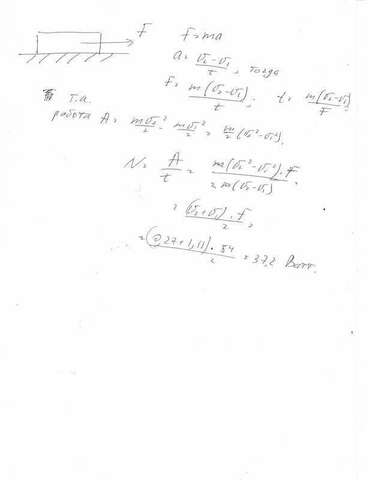 F
F = ma
a = (v₂ - v₁)/t, тогда
F = m(v₂ - v₁)/t; t = m(v₂ - v₁)/F
Т.а.
работа A = mv₂²/2 - mv₁²/2 = m/2 (v₂² - v₁²).
N = A/t = m(v₂² - v₁²)·F / 2m(v₂ - v₁) =
= (v₂ + v₁)·F / 2 =
= (0,27 + 1,11)·54 / 2 = 37,2 Ватт.